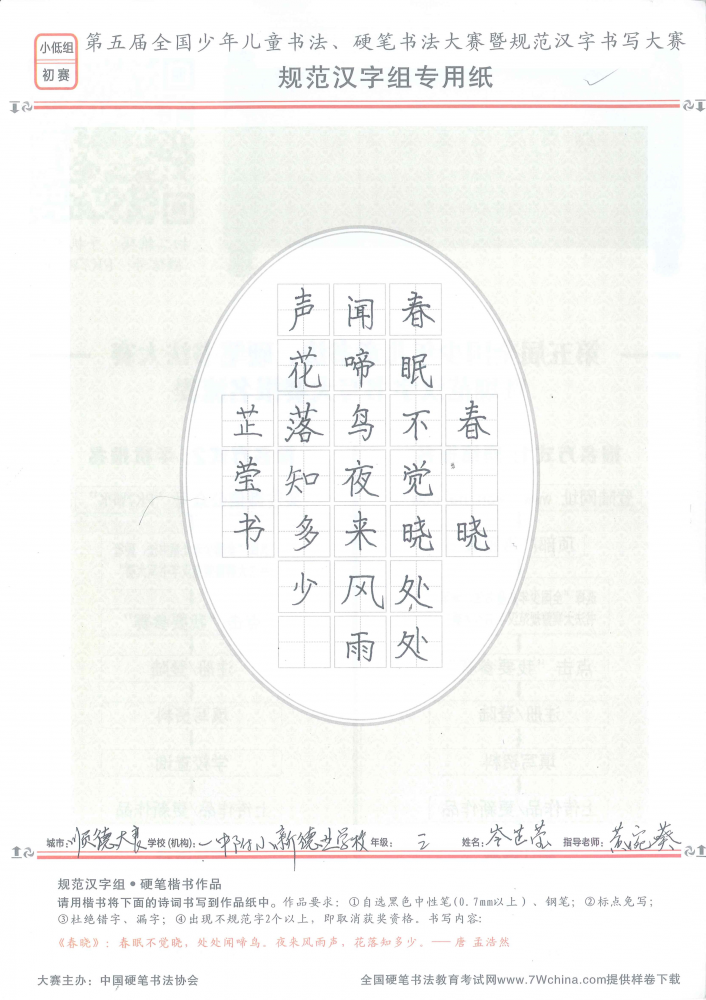 小低组
初赛
第五届全国少年儿童书法、硬笔书法大赛暨规范汉字书写大赛
规范汉字组专用纸
春晓
春眠不觉晓处处
闻啼鸟夜来风雨
声花落知多少
芷莹书
城市：顺德大良 学校(机构)：一中附小新德业学校 年级：三 姓名：岑芷莹 指导老师：黄宛葵
规范汉字组•硬笔楷书作品
请用楷书将下面的诗词书写到作品纸中。作品要求：①自选黑色中性笔(0.7mm以上)、钢笔；②标点免写；
③杜绝错字、漏字；④出现不规范字2个以上，即取消获奖资格。书写内容：
《春晓》：春眠不觉晓，处处闻啼鸟。夜来风雨声，花落知多少。——唐 孟浩然
大赛主办：中国硬笔书法协会
全国硬笔书法教育考试网www.7Wchina.com提供样卷下载